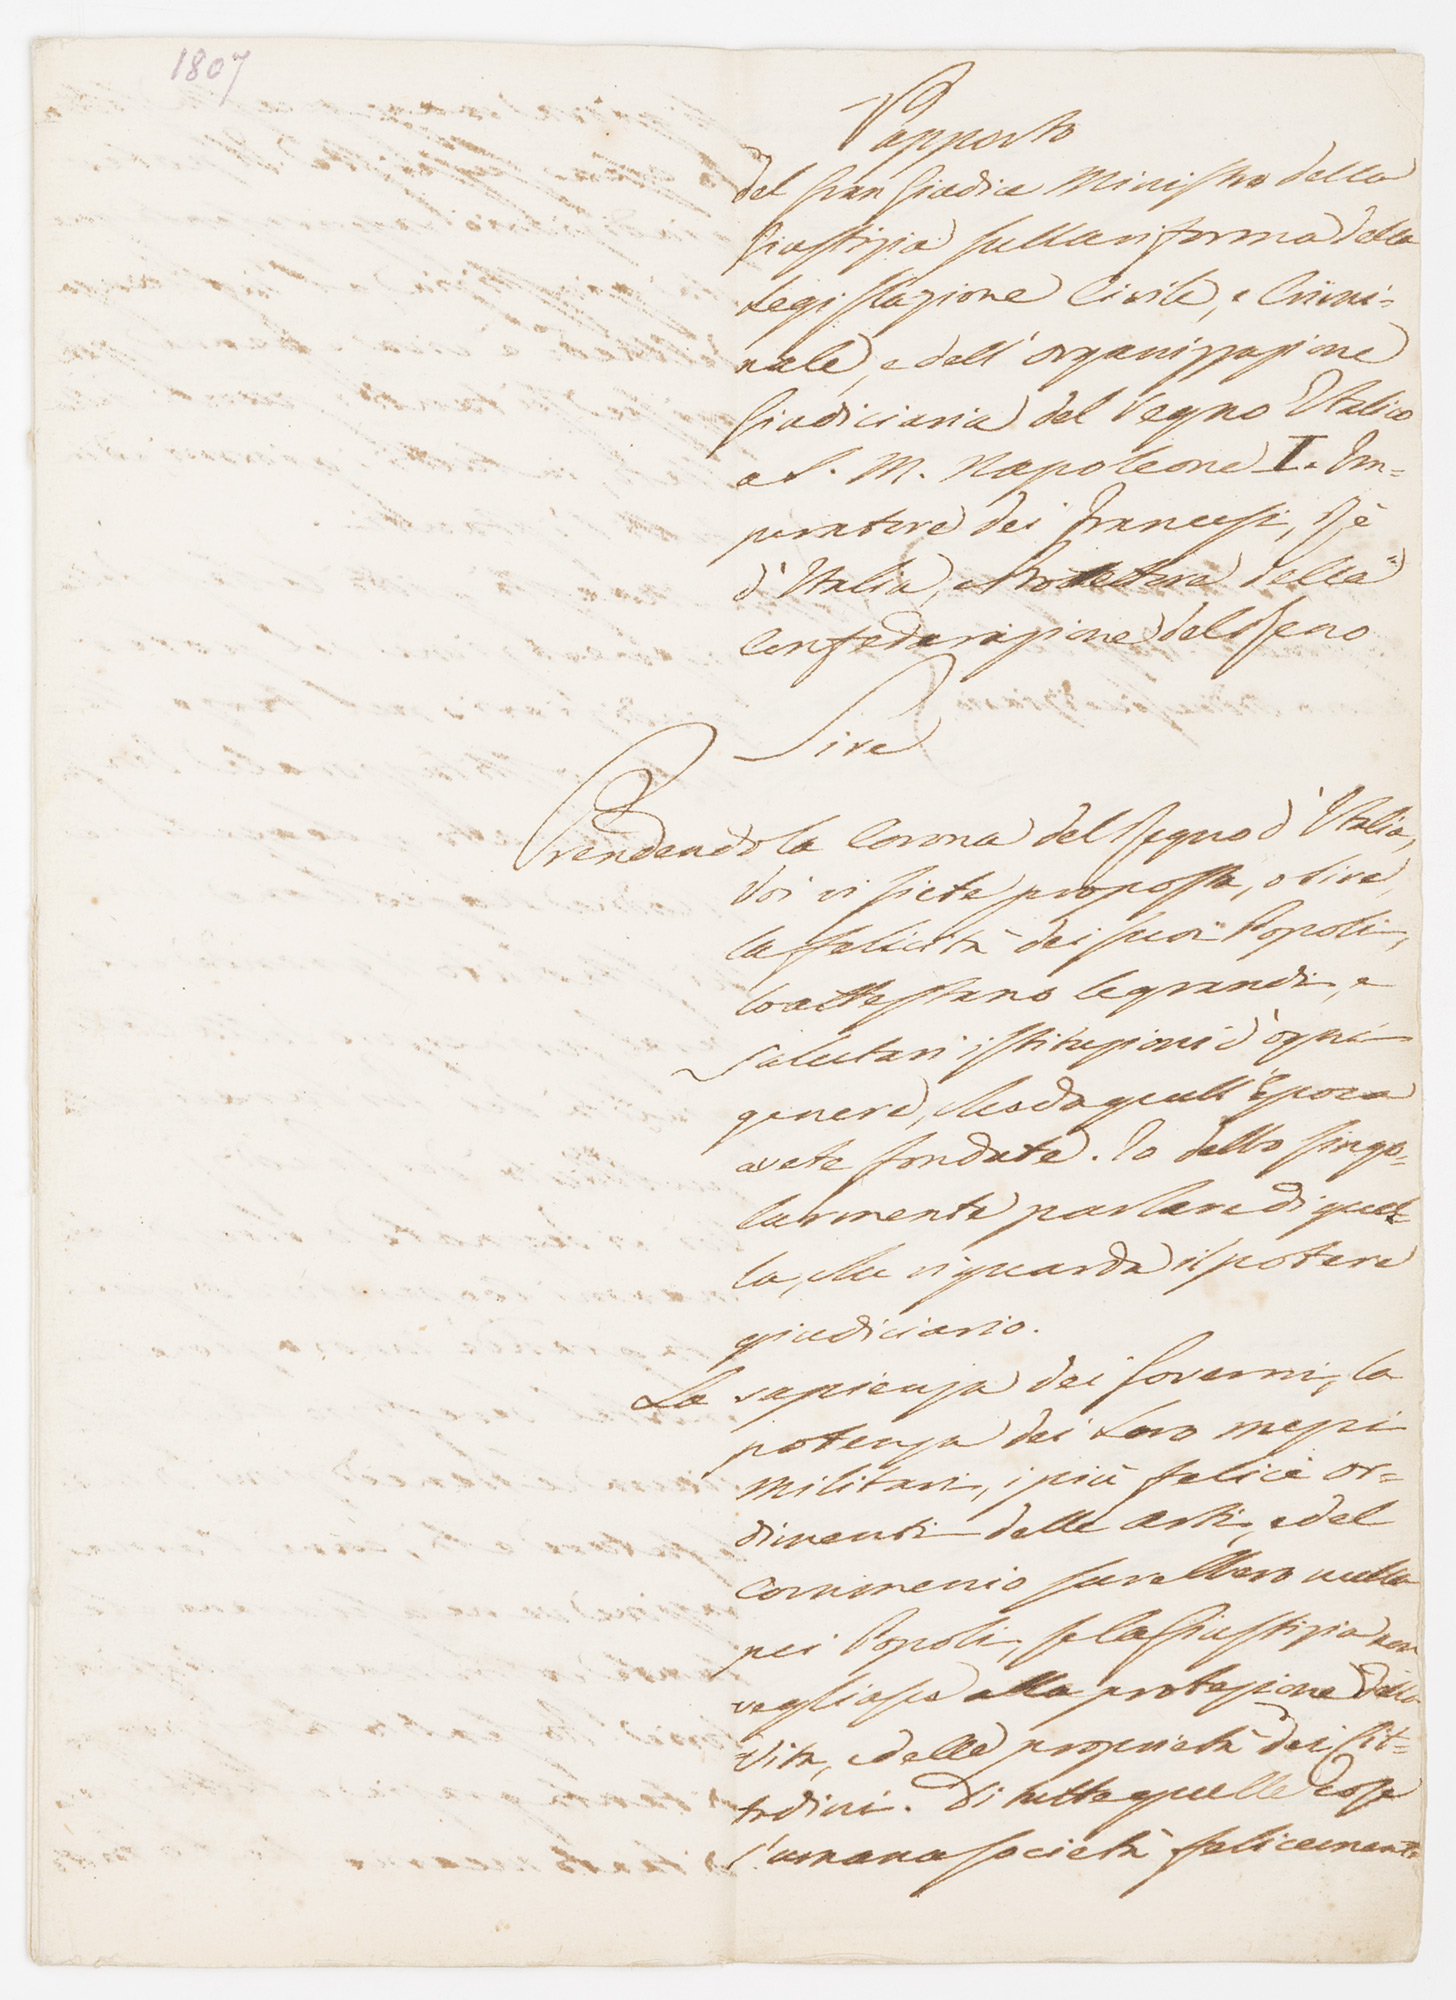 1807
Rapporto
del Gran Giudice Ministro della
Giustizia sulla riforma della
Legislazione Civile, e Crimi-
nale, e dell'organizzazione
Giudiciaria del Regno Italico
a S. M. Napoleone I. Im-
peratore dei Francesi, Rè
d'Italia, e Protettore della
Confederazione del Reno
Sire
Prendendo la Corona del Regno d'Italia,
Voi vi siete proposta, o Sire,
la felicità dei suoi Popoli,
lo attestano le grandi, e
salutari istituzioni d'ogni
genere, che da quell'Epoca
avete fondate. Io debbo singo-
larmente parlare di quel-
la, che riguarda il potere
giudiciario.
La sapienza dei Governi, la
potenza dei Loro mezzi
Militari, i più felici or-
dimenti delle Arti, e del
Commercio sarebbero nulla
pei Popoli, se la Giustizia non
vegliasse alla protezione della
Vita, e delle proprietà dei Cit-
tadini. Di tutte quelle cose
l'umana società felicemente